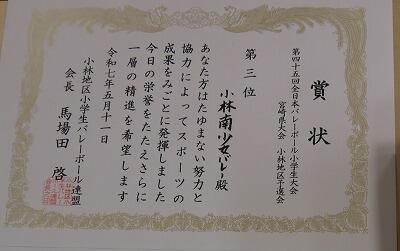 賞状
第四十五回全日本バレーボール小学生大会
宮崎県大会 小林地区予選会
第三位
小林南少女バレー殿
あなた方はたゆまない努力と
協力によってスポーツの
成果をみごとに発揮しました
今日の栄誉をたたえさらに
一層の精進を希望します
令和七年五月十一日
小林地区小学生バレーボール連盟
会長 馬場田 啓